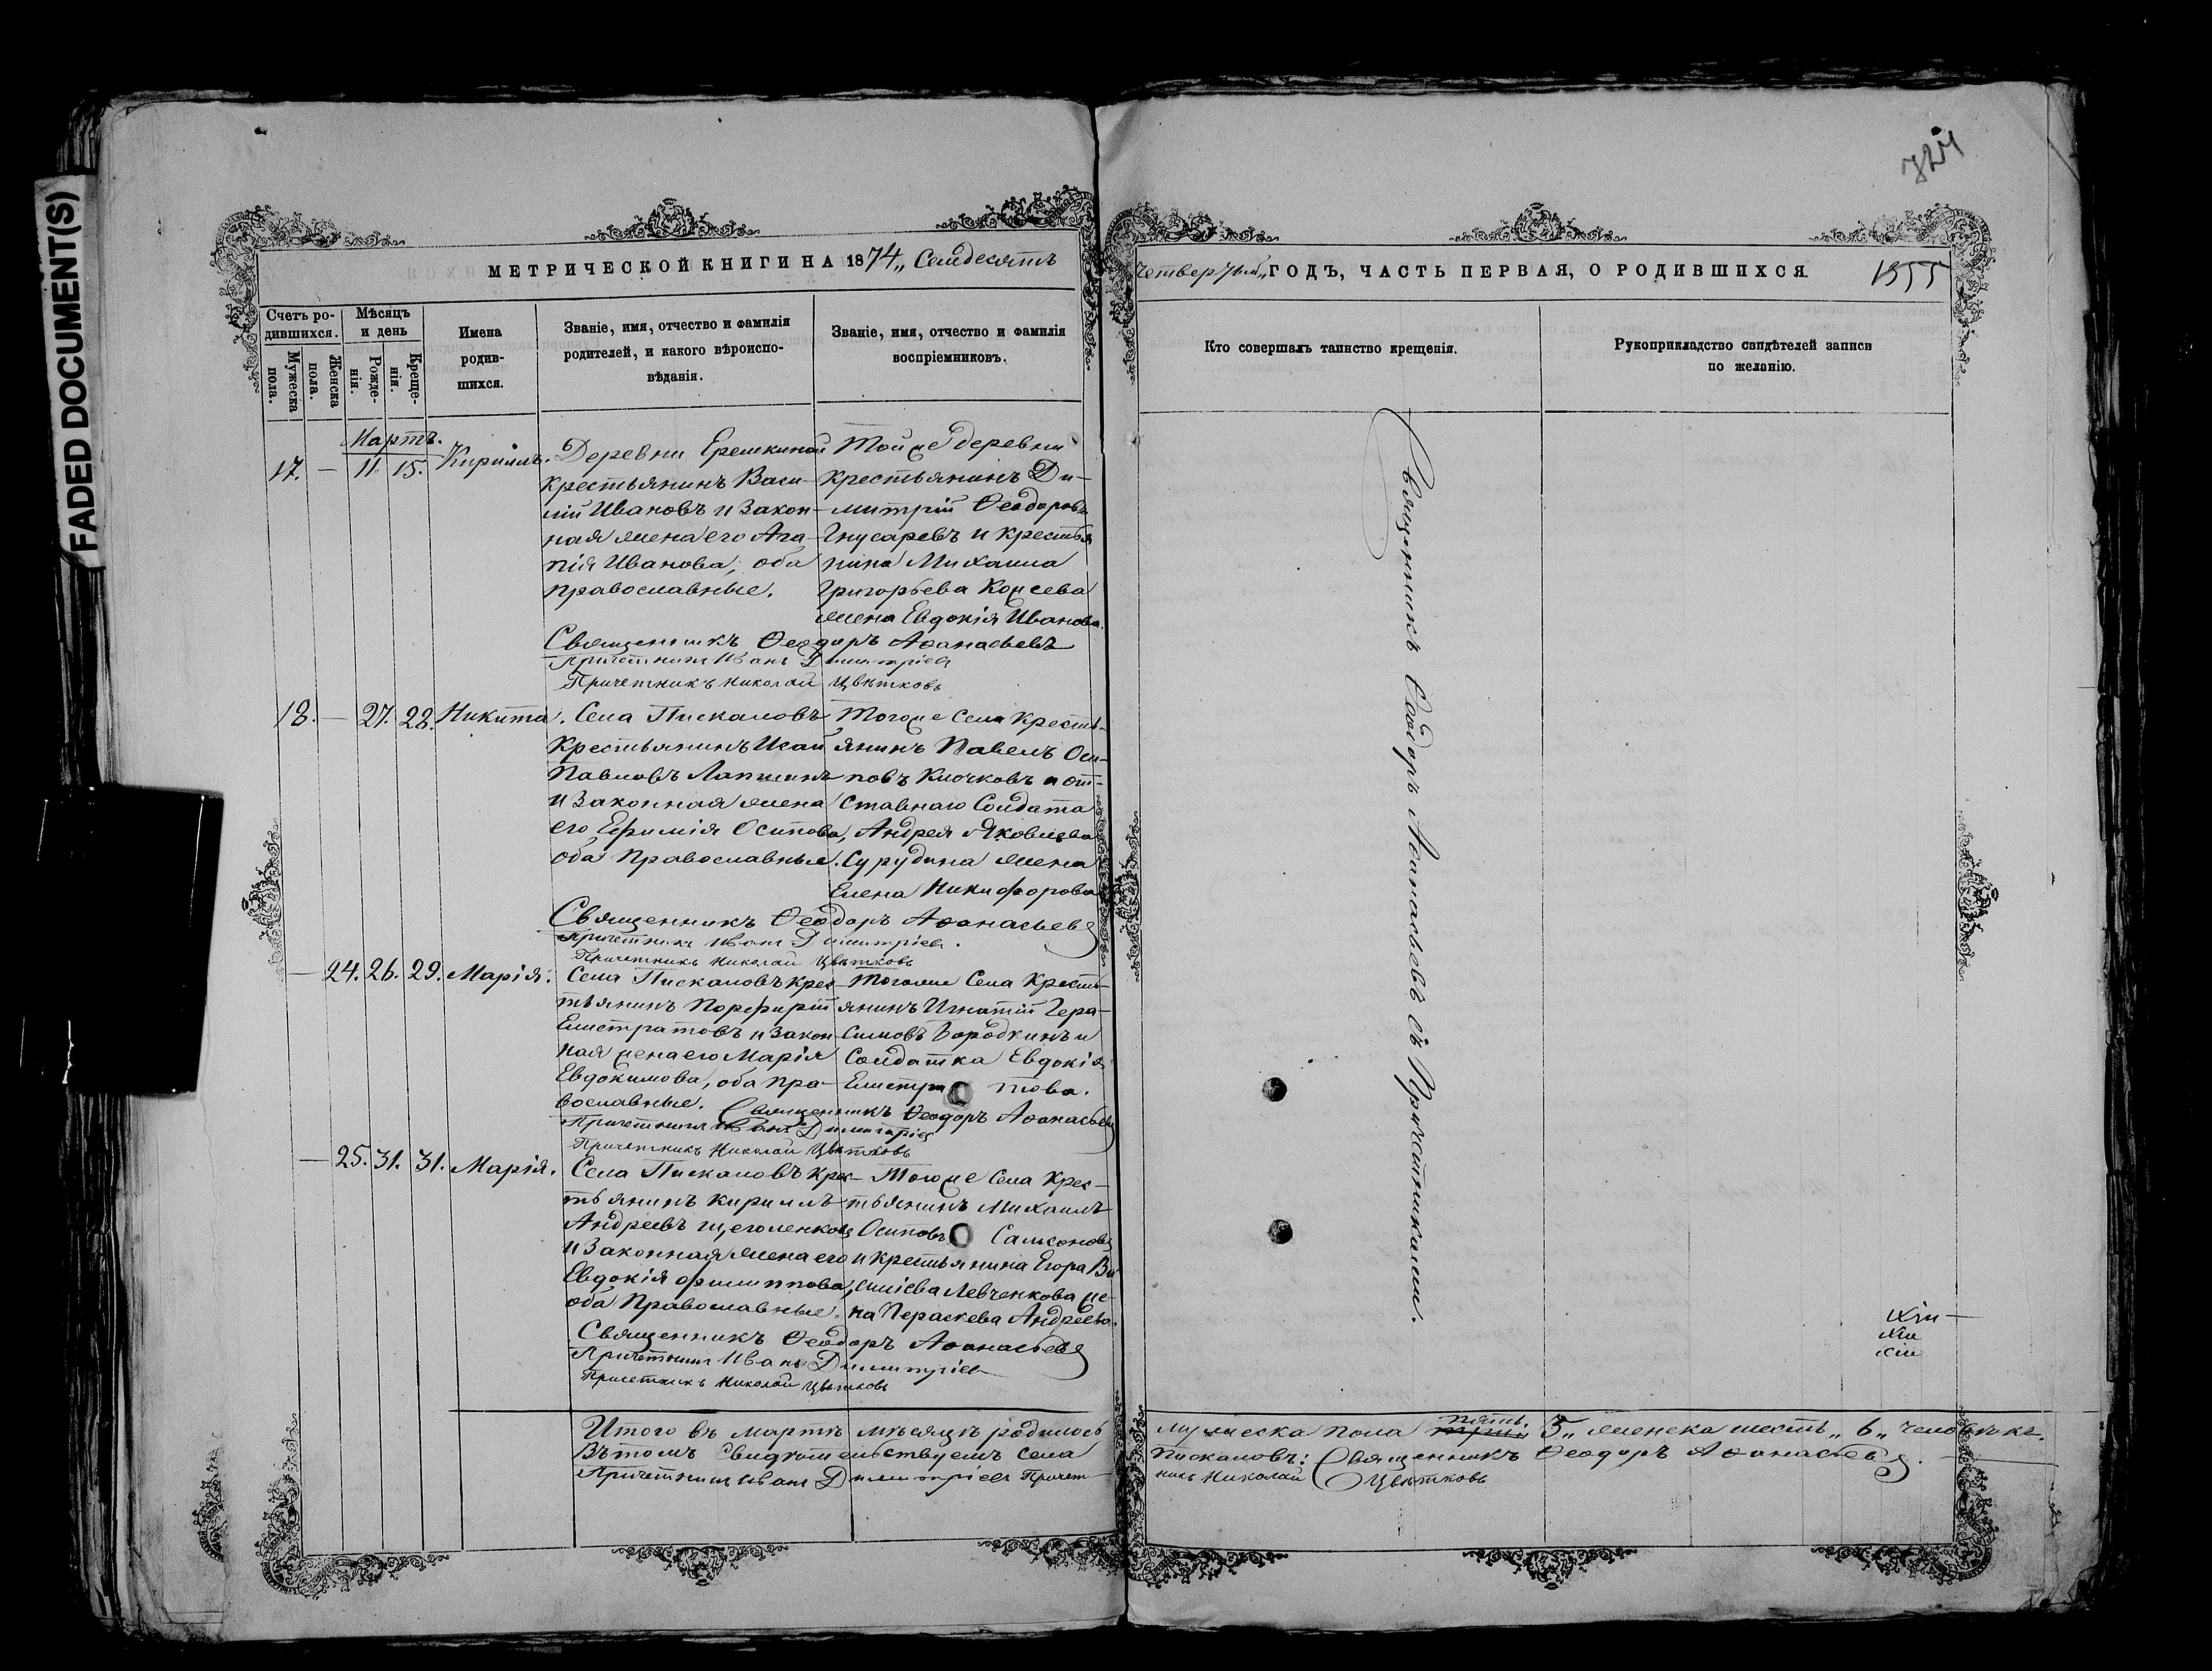 FADED DOCUMENT(S)
724
МЕТРИЧЕСКОЙ КНИГИ НА 1874„ Семдесятъ
четвертый„ ГОДЪ, ЧАСТЬ ПЕРВАЯ, О РОДИВШИХСЯ
1355
Счетъ ро-
дившихся.
Мужеска пола.
Женска пола.
Мѣсяцъ
и день
Рожде-
нія.
Креще-
нія.
Имена
родив-
шихся.
Званіе, имя, отчество и фамилія
родителей, и какого вѣроиспо-
вѣданія.
Званіе, имя, отчество и фамилія
воспріемниковъ.
Кто совершалъ таинство крещенія.
Рукоприкладство свидѣтелей записи
по желанію.
Мартъ.
17. — 11 15. Кириллъ.
Деревни Ерешкиной
крестьянинъ Васи-
лій Ивановъ и закон-
ная жена его Ага-
пія Иванова, оба
православные.
Тойже деревни
крестьянинъ Ди-
митрій Ѳеодоровъ
Гнусаревъ и крестья
нина Михаила
Григорьева Коисева
жена Евдокія Иванова.
Священникъ Ѳеодоръ Аѳанасьевъ
Причетникъ Иванъ Димитріев
Причетникъ Николай Цвѣтковъ
18. — 27. 28. Никита.
Села Пискаловъ
крестьянинъ Исай
Павловъ Лапшинъ
и законная жена
его Ефимія Осипова,
оба Православные.
Тогоже Села Кресть-
янинъ Павелъ Оси-
повъ Клочковъ и от-
ставнаго Солдата
Андрея Яковлева
Сурудина жена
Елена Никифорова
Священникъ Ѳеодоръ Аѳанасьевъ
Причетникъ Иванъ Димитріев.
Причетникъ Николай Цвѣтковъ
— 24. 26. 29. Марія.
Села Пискаловъ крес-
тьянинъ Порфирій
Елистратовъ и закон-
ная жена его Марія
Евдокимова, оба пра-
вославные.
Тогоже Села Кресть-
янинъ Игнатій Гера-
симовъ Бородкинъ и
Солдатка Евдокія
Елистратова.
Священникъ Ѳеодоръ Аѳанасьевъ
Причетникъ Иванъ Димитріев
Причетникъ Николай Цвѣтковъ
— 25. 31. 31. Марія.
Села Пискаловъ крес-
тьянинъ Кириллъ
Андреевъ Щеголенковъ
и законная жена его
Евдокія Филиппова,
оба Православные.
Тогоже Села Крес-
тьянинъ Михаилъ
Осиповъ Самсоновъ
и крестьянина Егора Ва
силіева Левченкова же-
на Пераскева Андреева.
Священникъ Ѳеодоръ Аѳанасьевъ
Причетникъ Иванъ Димитріев
Причетникъ Николай Цвѣтковъ
Священникъ Ѳеодоръ Аѳанасьевъ съ Причетниками.
Итого въ мартѣ мѣсяцѣ родилось мужеска пола пять 5„ женска шесть „6„ человѣкъ.
Въ томъ свидѣтельствуемъ села Пискаловъ: Священникъ Ѳеодоръ Аѳанасьевъ.
Причетникъ Иванъ Димитріевъ Причетникъ Николай Цвѣтковъ